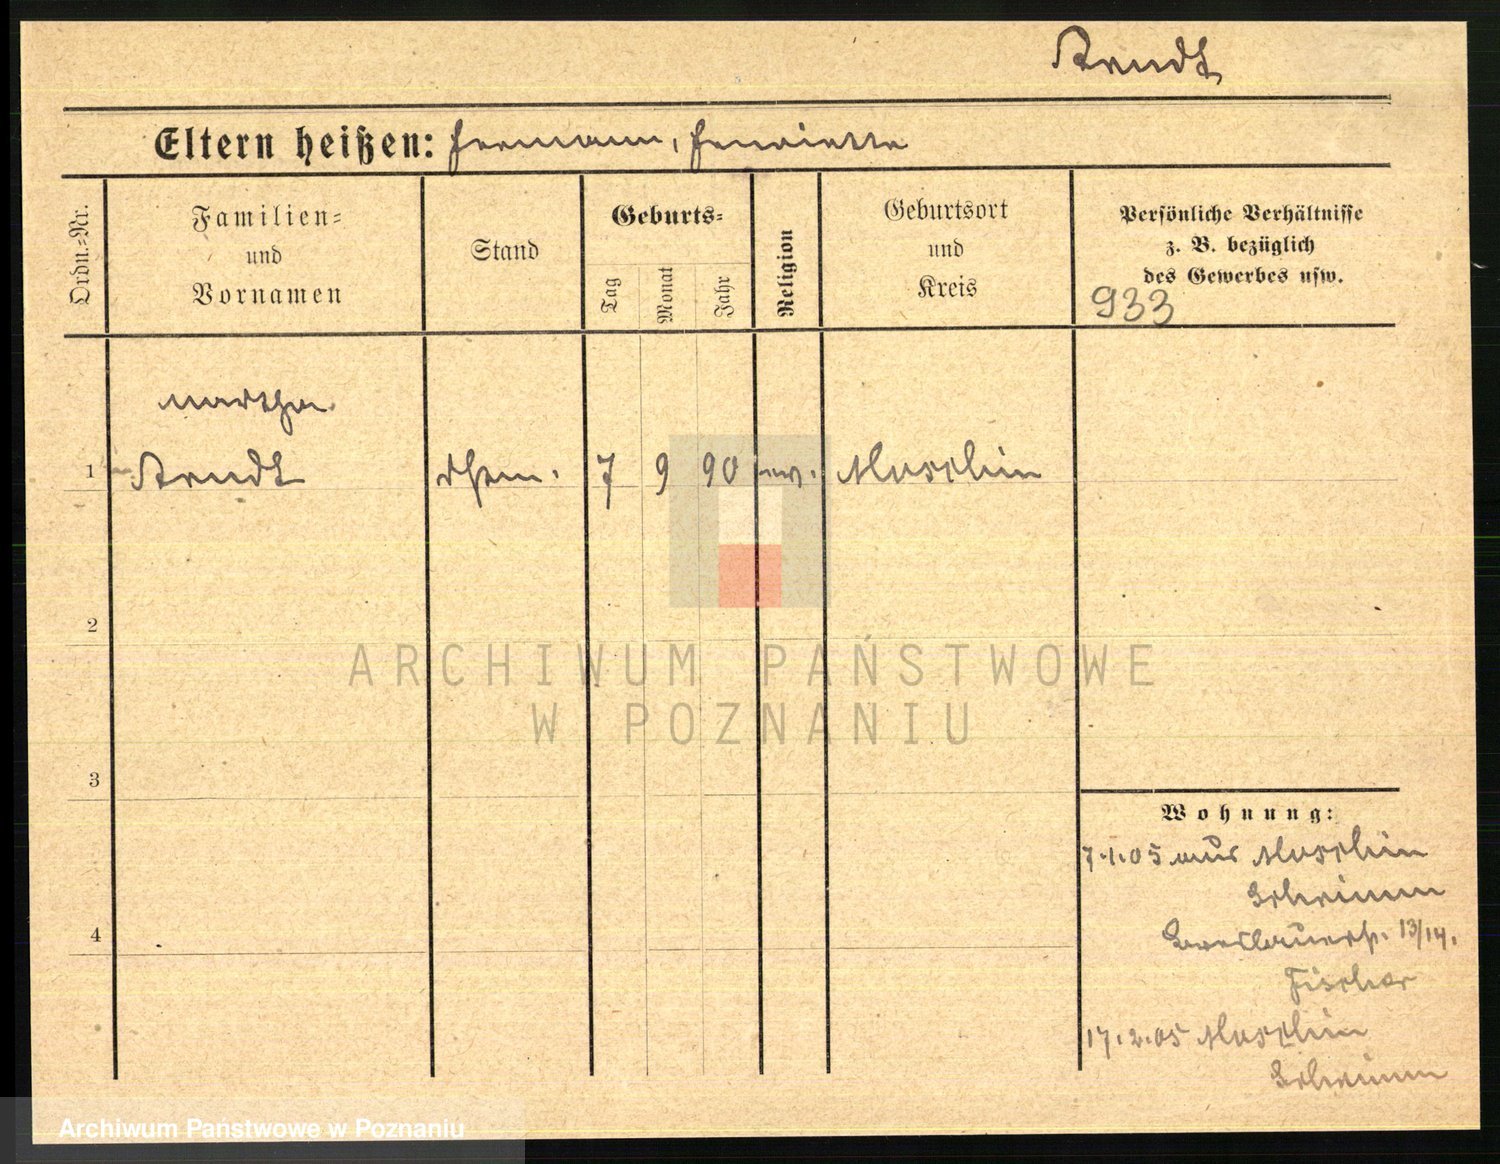 Arndt
Eltern heißen: Hermann, Henriette
Ordn.=Nr.
Familien=
und
Vornamen
Stand
Geburts=
Tag
Monat
Jahr
Religion
Geburtsort
und
Kreis
Persönliche Verhältnisse
z. B. bezüglich
des Gewerbes usw.
933
Martha
1 Arndt 7 9 90 ev. Moschin
2
3
Wohnung:
7.1.05 aus Moschin
Schrimm
4
Breslauerstr. 13/14.
Fischer
17.2.05 Moschin
Schrimm
ARCHIWUM PAŃSTWOWE
W POZNANIU
Archiwum Państwowe w Poznaniu